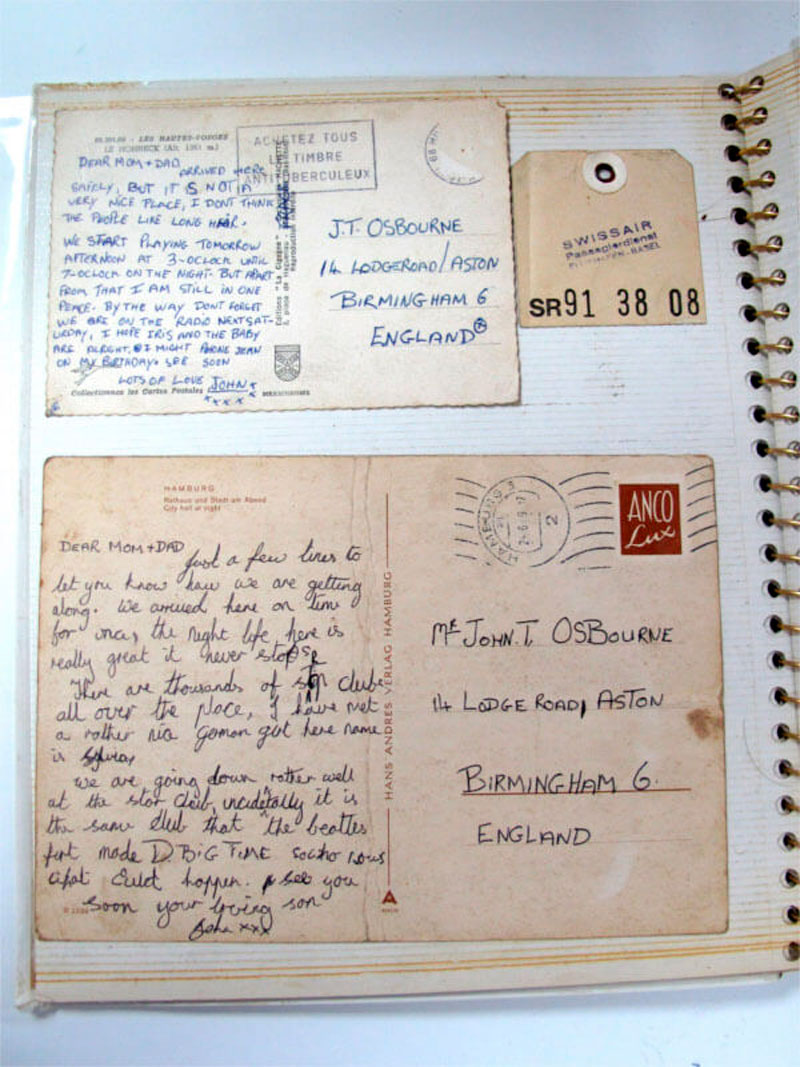 LES HAUTES-VOSGES
LE HOHNECK (Alt. 1361 m.)
DEAR MOM + DAD
ARRIVED HERE
SAFELY, BUT IT IS NOT A
VERY NICE PLACE, I DONT THINK
THE PEOPLE LIKE LONG HAIR.
WE START PLAYING TOMORROW
AFTERNOON AT 3-OCLOCK UNTIL
7-OCLOCK ON THE NIGHT. BUT APART
FROM THAT I AM STILL IN ONE
PEACE. BY THE WAY DONT FORGET
WE ARE ON THE RADIO NEXT SAT-
URDAY, I HOPE IRIS AND THE BABY
ARE ALRIGHT, I MIGHT PHONE JEAN
ON MY BIRTHDAY. SEE SOON
LOTS OF LOVE JOHN
xxxx
Collectionnez les Cartes Postales
MEXICHROME
Editions "La Cigogne"
ACHETEZ TOUS
LE TIMBRE
ANTITUBERCULEUX
J.T. OSBOURNE
14 LODGEROAD/ASTON
BIRMINGHAM 6
ENGLAND
SWISSAIR
Passagierdienst
SR91 38 08
HAMBURG
Rathaus und Stadt am Abend
City hall at night
DEAR MOM + DAD
Just a few lines to
let you know how we are getting
along. We arrived here on time
for once, the night life here is
really great it never stops
There are thousands of clubs
all over the place, I have met
a rather nice German girl here name
is Sylvia
We are going down rather well
at the star club, incidetally it is
the same club that the beatles
first made D BIG TIME so who nows
what could happen. see you
soon your loving son
John xxx
HANS ANDRES VERLAG HAMBURG
HAMBURG
2
ANCO
Lux
MR JOHN.T. OSBOURNE
14 LODGE ROAD, ASTON
BIRMINGHAM 6.
ENGLAND